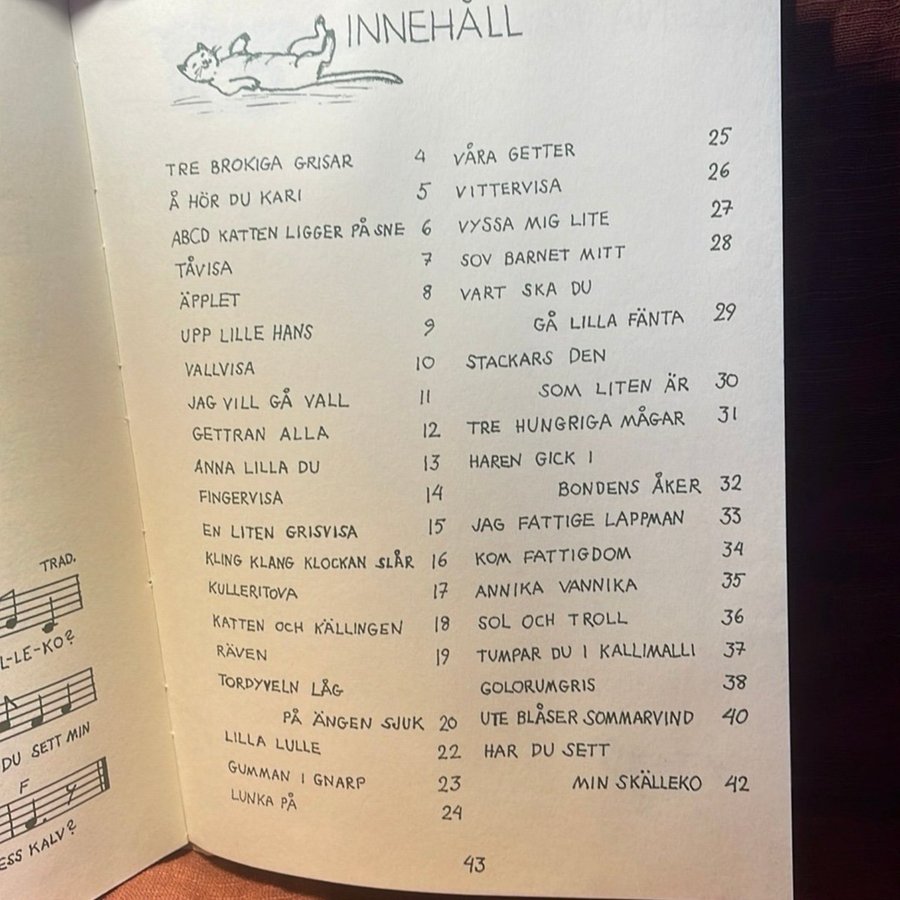 INNEHÅLL
TRE BROKIGA GRISAR 4
Å HÖR DU KARI 5
ABCD KATTEN LIGGER PÅ SNE 6
TÅVISA 7
ÄPPLET 8
UPP LILLE HANS 9
VALLVISA 10
JAG VILL GÅ VALL 11
GETTRAN ALLA 12
ANNA LILLA DU 13
FINGERVISA 14
EN LITEN GRISVISA 15
KLING KLANG KLOCKAN SLÅR 16
KULLERITOVA 17
KATTEN OCH KÄLLINGEN 18
RÄVEN 19
TORDYVELN LÅG
PÅ ÄNGEN SJUK 20
LILLA LULLE 22
GUMMAN I GNARP 23
LUNKA PÅ 24
VÅRA GETTER 25
VITTERVISA 26
VYSSA MIG LITE 27
SOV BARNET MITT 28
VART SKA DU
GÅ LILLA FÄNTA 29
STACKARS DEN
SOM LITEN ÄR 30
TRE HUNGRIGA MÅGAR 31
HAREN GICK I
BONDENS ÅKER 32
JAG FATTIGE LAPPMAN 33
KOM FATTIGDOM 34
ANNIKA VANNIKA 35
SOL OCH TROLL 36
TUMPAR DU I KALLIMALLI 37
GOLORUMGRIS 38
UTE BLÅSER SOMMARVIND 40
HAR DU SETT
MIN SKÄLLEKO 42
43
TRAD.
L-LE-KO?
DU SETT MIN
F
ESS KALV?